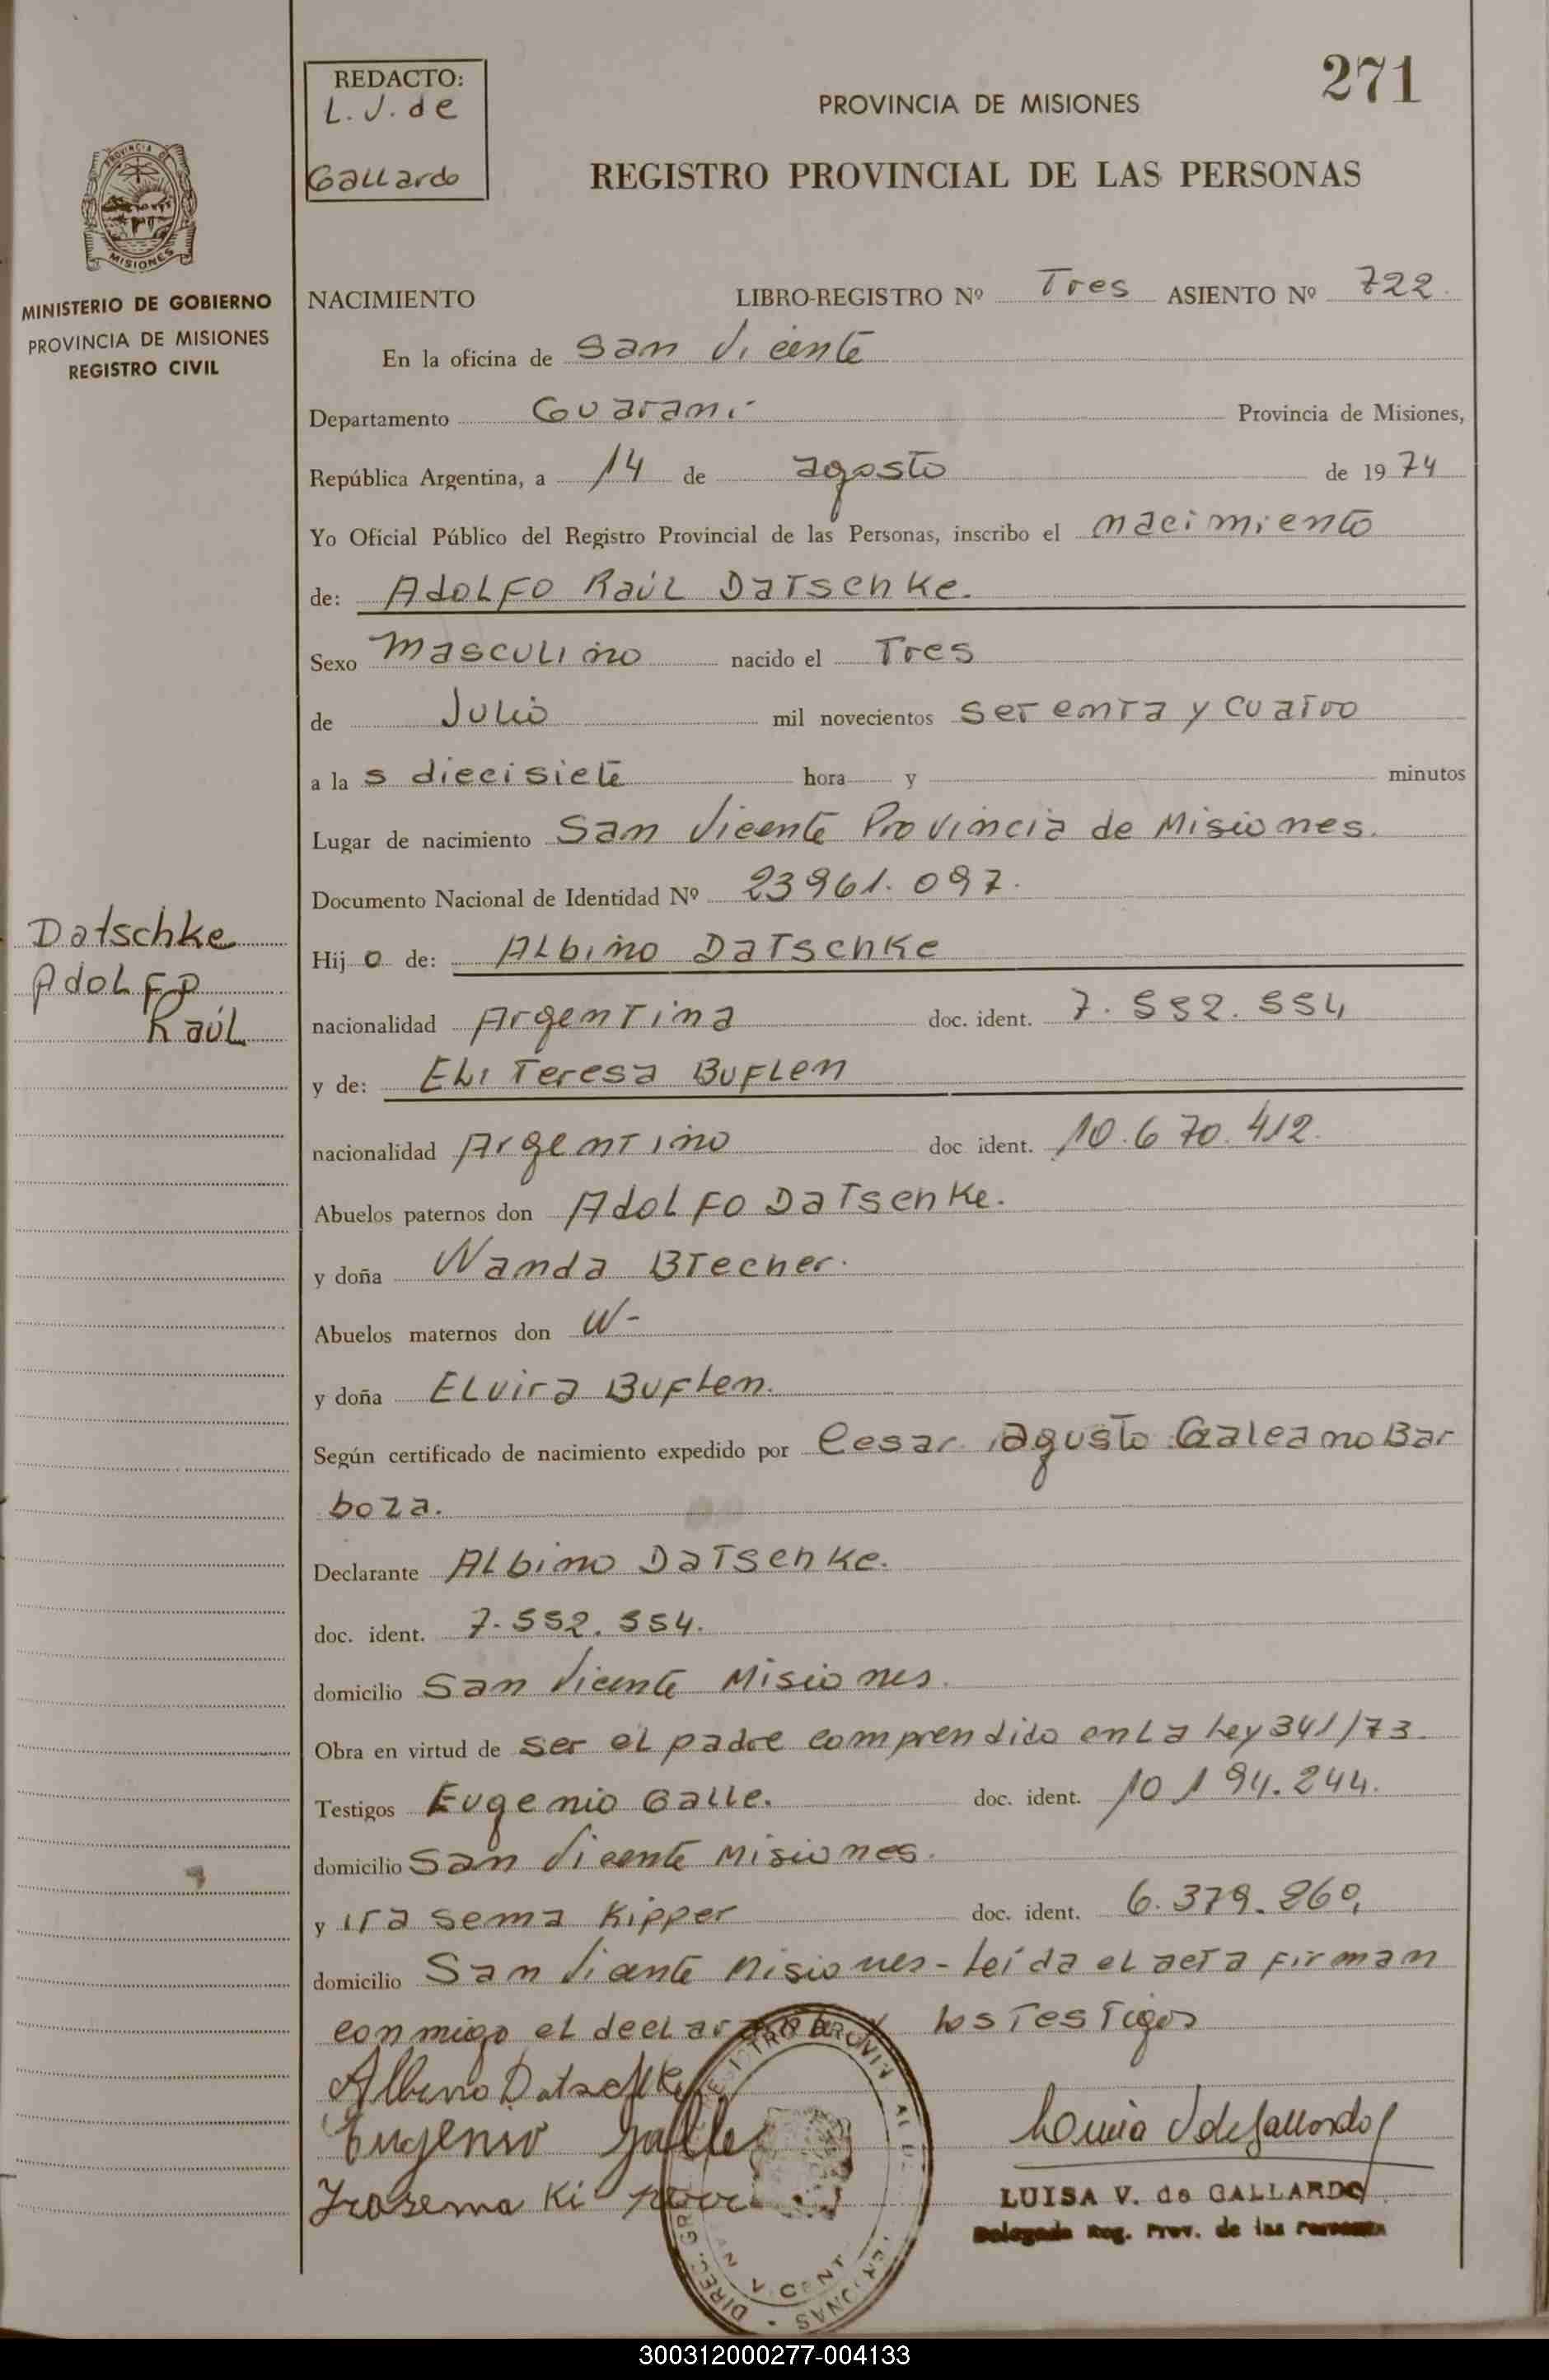 271
REDACTO:
L. V. de
Gallardo
PROVINCIA DE MISIONES
REGISTRO PROVINCIAL DE LAS PERSONAS
PROVINCIA DE
MISIONES
MINISTERIO DE GOBIERNO
PROVINCIA DE MISIONES
REGISTRO CIVIL
NACIMIENTO LIBRO-REGISTRO Nº Tres ASIENTO Nº 722
En la oficina de San Vicente
Departamento Guaraní Provincia de Misiones,
República Argentina, a 14 de agosto de 1974
Yo Oficial Público del Registro Provincial de las Personas, inscribo el nacimiento
de: Adolfo Raúl Datschke.
Sexo Masculino nacido el Tres
de Julio mil novecientos setenta y cuatro
a las diecisiete hora y minutos
Lugar de nacimiento San Vicente Provincia de Misiones.
Documento Nacional de Identidad Nº 23961.097.
Datschke
Adolfo
Raúl
Hijo de: Albino Datschke
nacionalidad Argentina doc. ident. 7.552.554
y de: Eli Teresa Buflen
nacionalidad Argentino doc ident. 10.670.412.
Abuelos paternos don Adolfo Datschke.
y doña Wanda Brecher.
Abuelos maternos don W-
y doña Elvira Buflen.
Según certificado de nacimiento expedido por Cesar agusto Galeano Bar
boza.
Declarante Albino Datschke.
doc. ident. 7.552.554.
domicilio San Vicente Misiones.
Obra en virtud de ser el padre comprendido en La Ley 341/73.
Testigos Eugenio Galle. doc. ident. 10194.244.
domicilio San Vicente Misiones.
y Ira sema Kipper doc. ident. 6.379.860,
domicilio San Vicente Misiones - Leída el acta firman
conmigo el declarante y los Testigos
Albino Datschke
Eugenio Galle
Irasema Kipper
LUISA V. de GALLARDO
Delegada Reg. Prov. de las Personas
300312000277-004133